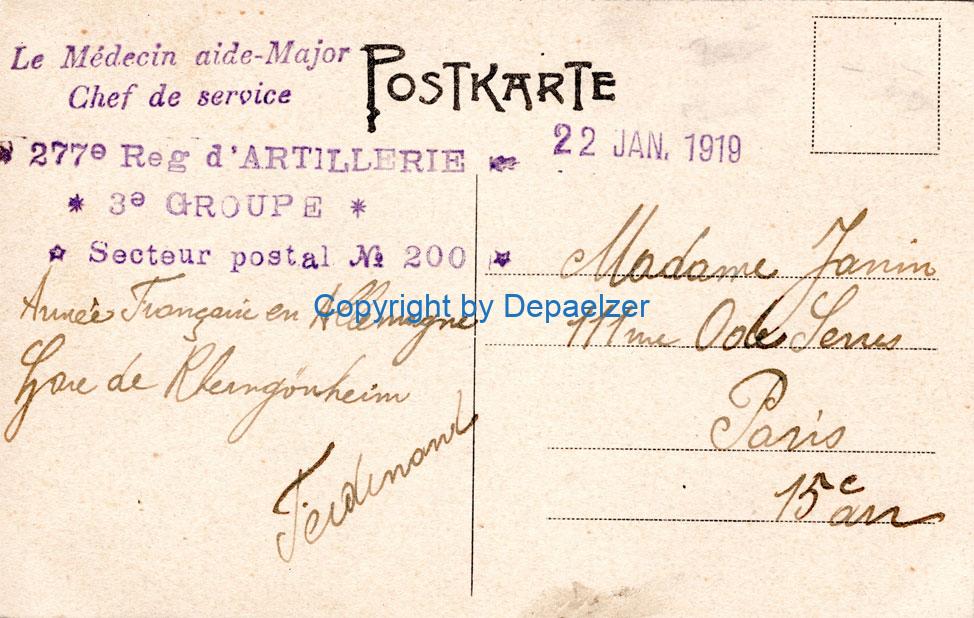 Le Médecin aide-Major
Chef de service
POSTKARTE
277e Reg d'ARTILLERIE
22 JAN. 1919
* 3e GROUPE *
Secteur postal № 200
Armée Française en Allemagne
Gare de Rhemgönheim
Ferdinand
Madame Janin
111 rue O de Serres
Paris
15e arr
Copyright by Depaelzer